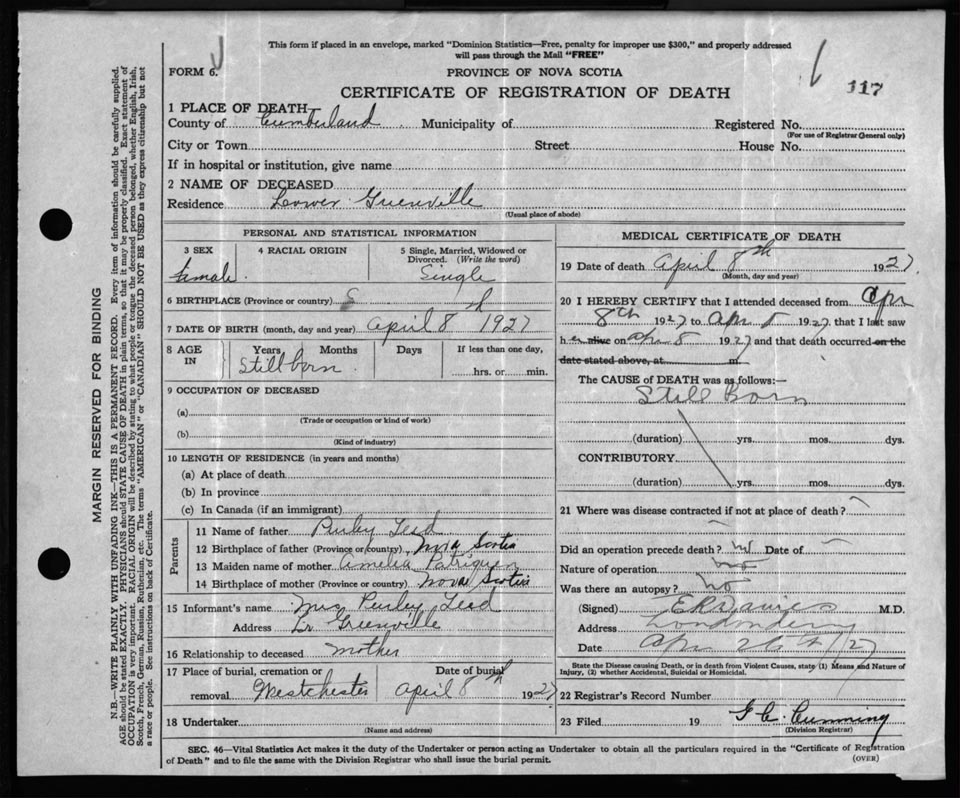 This form if placed in an envelope, marked "Dominion Statistics—Free, penalty for improper use $300," and properly addressed
will pass through the Mail "FREE"
FORM 6.
PROVINCE OF NOVA SCOTIA
117
CERTIFICATE OF REGISTRATION OF DEATH
1 PLACE OF DEATH
County of Cumberland Municipality of Registered No.
(For use of Registrar General only)
City or Town Street House No.
If in hospital or institution, give name
2 NAME OF DECEASED
Residence Lower Greenville
(Usual place of abode)
PERSONAL AND STATISTICAL INFORMATION
3 SEX 4 RACIAL ORIGIN 5 Single, Married, Widowed or
Divorced. (Write the word)
Female Single
6 BIRTHPLACE (Province or country)
7 DATE OF BIRTH (month, day and year) April 8th 1927
8 AGE IN Years Months Days If less than one day,
Stillborn hrs. or min.
9 OCCUPATION OF DECEASED
(a)
(Trade or occupation or kind of work)
(b)
(Kind of industry)
10 LENGTH OF RESIDENCE (in years and months)
(a) At place of death
(b) In province
(c) In Canada (if an immigrant)
Parents
11 Name of father Purley
12 Birthplace of father (Province or country) Nova Scotia
13 Maiden name of mother Amelia Patriquin
14 Birthplace of mother (Province or country) Nova Scotia
15 Informant's name Mrs Purley
Address Lr Greenville
16 Relationship to deceased mother
17 Place of burial, cremation or Date of burial
removal Westchester April 8th 1927
18 Undertaker
(Name and address)
MEDICAL CERTIFICATE OF DEATH
19 Date of death April 8th 1927
(Month, day and year)
20 I HEREBY CERTIFY that I attended deceased from Apr
8th 1927 to Apr 8 1927, that I last saw
her alive on Apr 8 1927 and that death occurred on the
date stated above, at m.
The CAUSE of DEATH was as follows:—
Still Born
(duration) yrs. mos. dys.
CONTRIBUTORY
(duration) yrs. mos. dys.
21 Where was disease contracted if not at place of death?
Did an operation precede death? no Date of
Nature of operation no
Was there an autopsy? no
(Signed) M.D.
Address Londonderry
Date Apr 26th/27
State the Disease causing Death, or in death from Violent Causes, state (1) Means and Nature of
Injury, (2) whether Accidental, Suicidal or Homicidal.
22 Registrar's Record Number
23 Filed 19 Cumming
(Division Registrar)
SEC. 46—Vital Statistics Act makes it the duty of the Undertaker or person acting as Undertaker to obtain all the particulars required in the "Certificate of Registration
of Death" and to file the same with the Division Registrar who shall issue the burial permit.
(OVER)
MARGIN RESERVED FOR BINDING
N.B.—WRITE PLAINLY WITH UNFADING INK—THIS IS A PERMANENT RECORD. Every item of information should be carefully supplied.
AGE should be stated EXACTLY. PHYSICIANS should STATE CAUSE OF DEATH in plain terms, so that it may be properly classified. Exact statement of
OCCUPATION is very important. RACIAL ORIGIN will be described by stating to what people or tongue the deceased person belonged, whether English, Irish,
Scotch, French, German, Russian, Ruthenian, etc. The terms "AMERICAN" or "CANADIAN" SHOULD NOT BE USED as they express citizenship but not
a race or people. See instructions on back of Certificate.